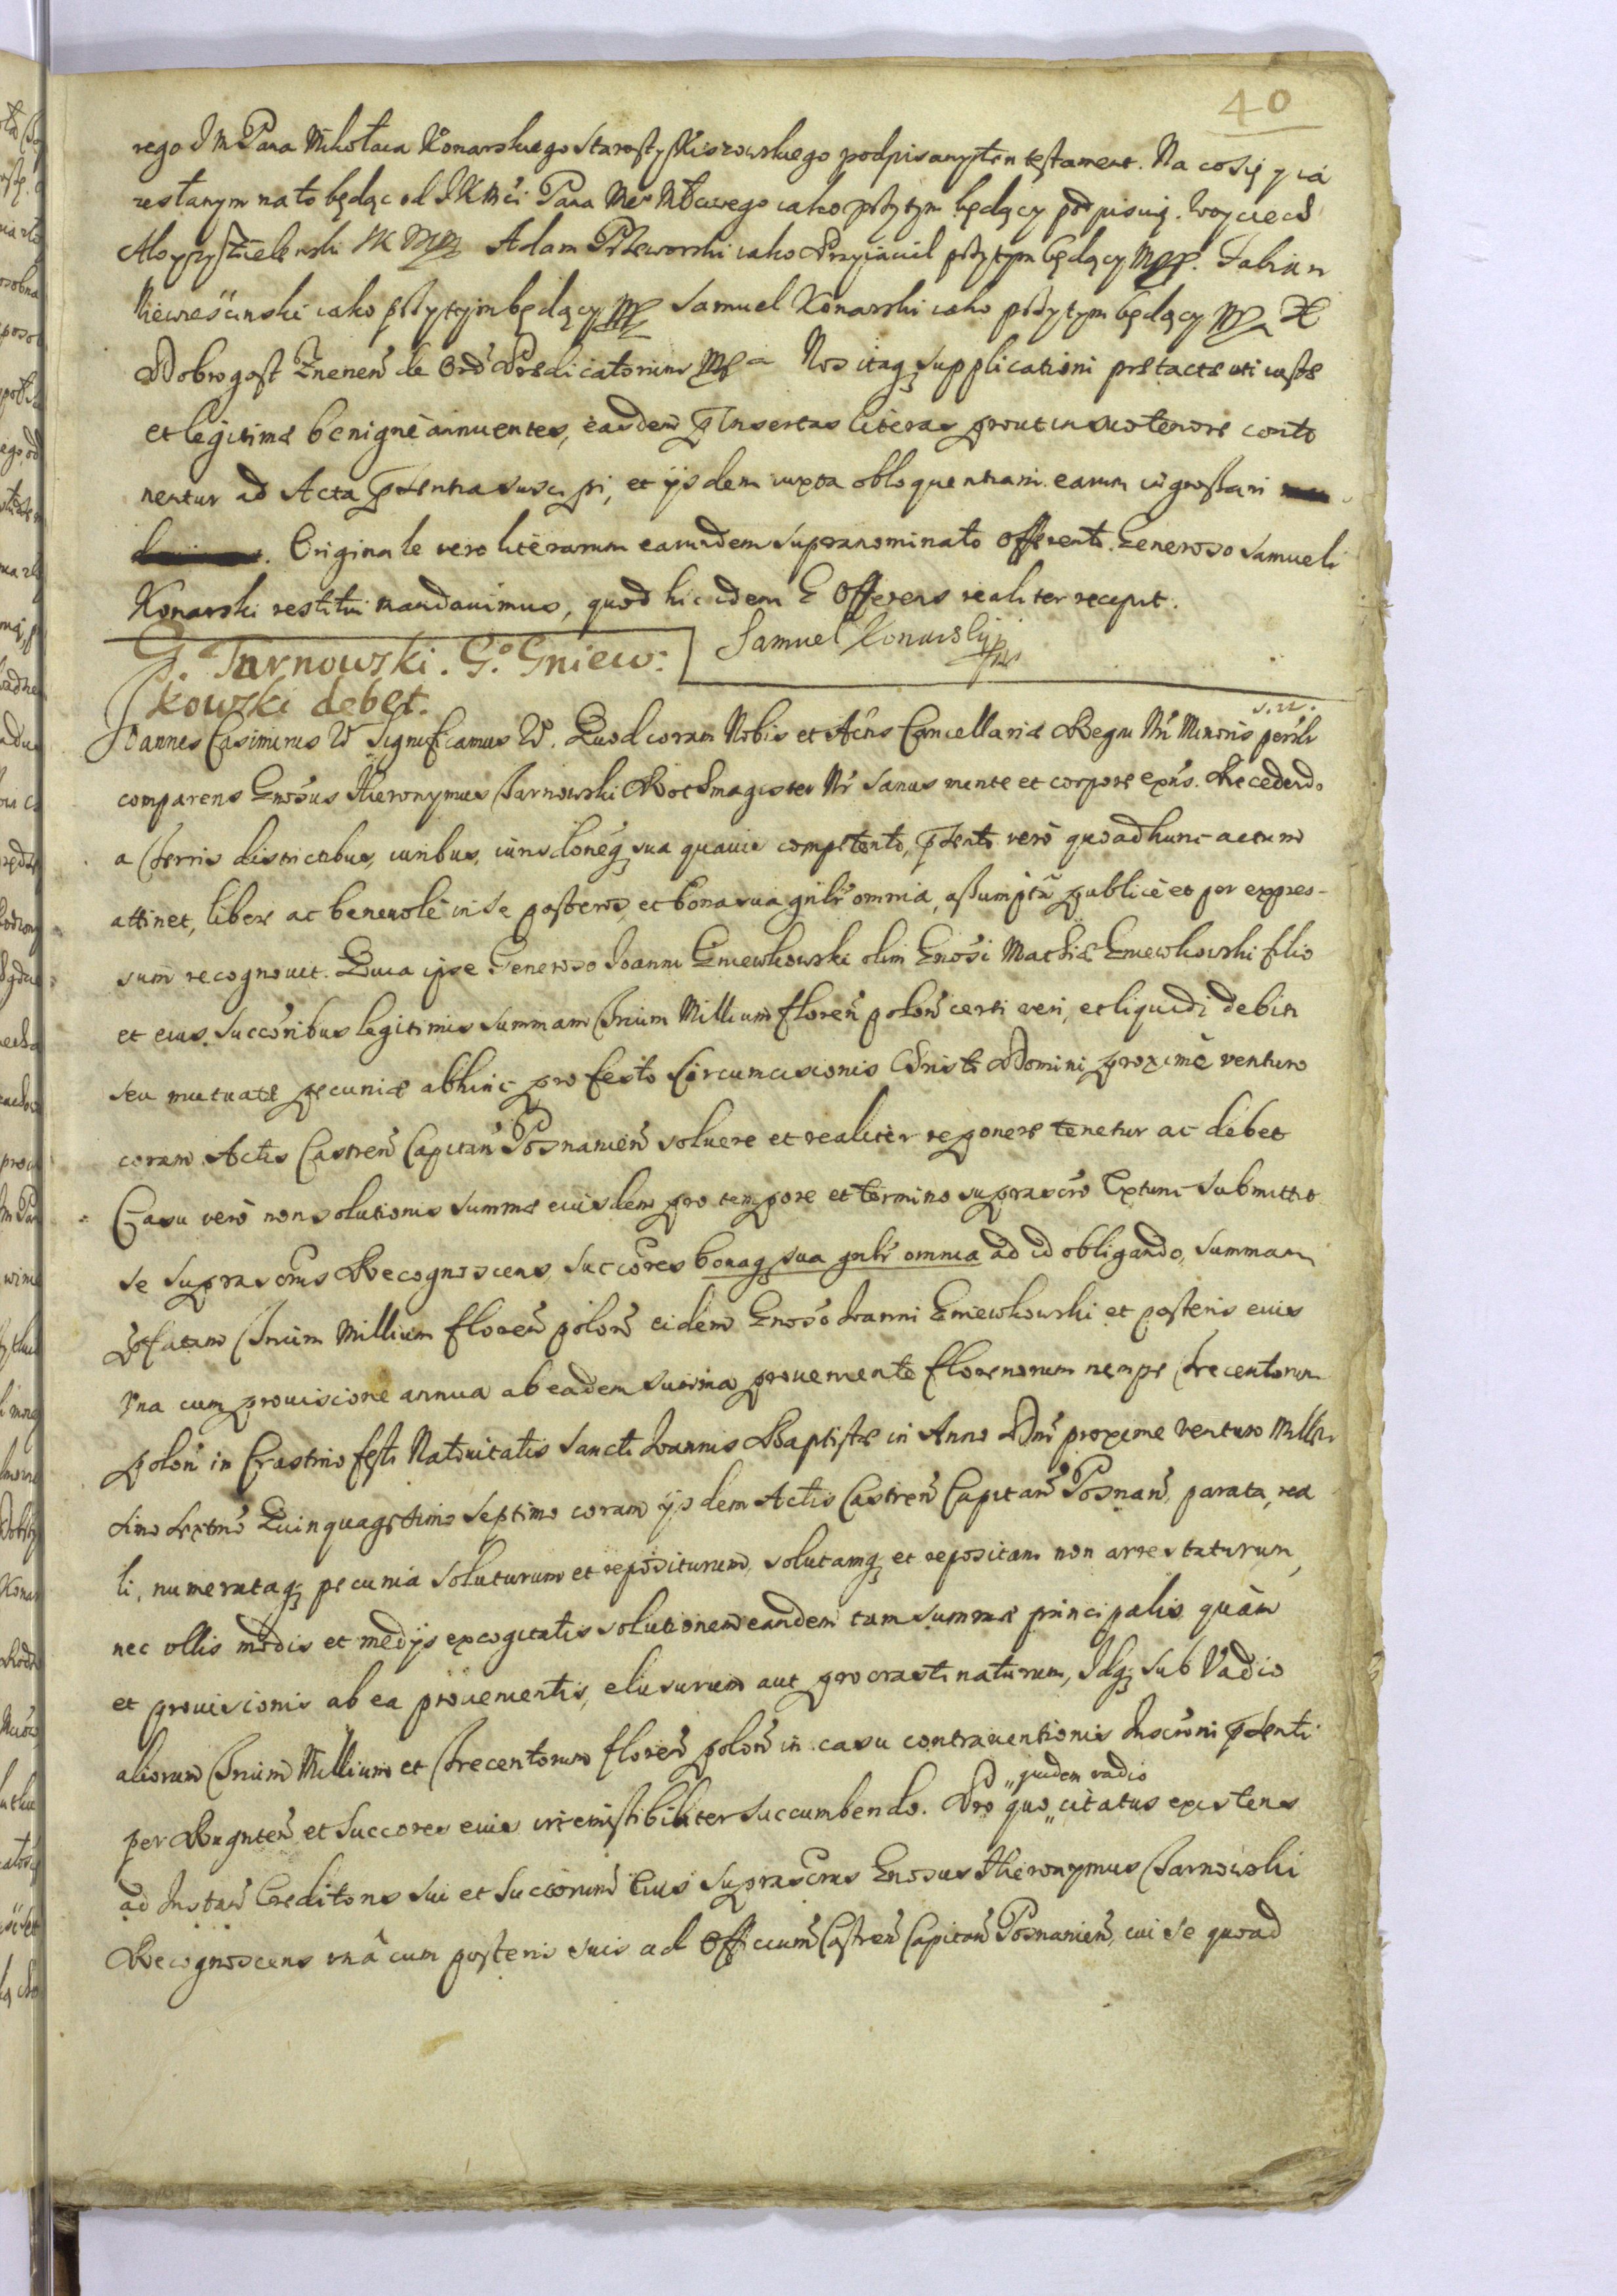 40
rego J M Pana Mikołaia Konarskiego Starosty Kiszowskiego podpisany ten testament. Na co się y ia
zesłanym na to będąc od JK Mći Pana Mgo Młćiwego iako przytym będący podpisuię. Woyciech
Aloyzy Strzelewski mp Adam Przeworski iako Przyiaciel przytym będący mpp. Fabian
Niewieściński iako przytym będący mp Samuel Konarski iako przytym będący mp X
Dobrogost Znenen de Ord Predicatorum mp Nos itaq supplicationi pretacte uti iuste
et legitime benignè annuentes, easdem p Insertas literas prout in suo tenore conti
nentur ad Acta pntia suscipi, et ijsdem iuxta obloquentiam earum ingrossari
Originale vero literarum earundem supranominato Offerenti Generoso Samueli
Konarski restitui mandauimus, quod hic idem G Offerens realiter recepit.
Samuel Konarsky mp
G. Tarnowski. G.o Gniew:
kowski debet.
s.n.
Joannes Casimirus &c Significamus &c. Quod coram Nobis et Actis Cancellariæ Regni Nri Minoris perslr
comparens Gnosus Hieronymus Tarnowski Rothmagister Nr Sanus mente et corpore exns. Recedendo
a Terris districtibus, iuribus, iurisdoneq sua quauis competenti, pnti verò quoad hunc actum
attinet, libere ac beneuolè in se posteros, et bona sua gnlr omnia, assumptu publicè et per expres-
sum recognouit. Quia ipse Generoso Joanni Gniewkowski olim Gnosi Mathiæ Gniewkowski filio
et eius succoribus legitimis summam Trium Millium floren polon certi veri, et liquidi debiti
seu mutuate pecuniæ abhinc pro festo Circumcisionis Christi Domini proximè venturo
coram Actis Castren Capitan Posnanien soluere et realiter reponere tenetur ac debet
Casu verò non solutionis summæ eiusdem pro tempore et termino suprascro Extunc submittit
se suprascrus Recognoscens, succores bonaq sua gnlr omnia ad id obligando, summam
pfatam Trium Millium floren polon eidem Gnoso Joanni Gniewkowski et posteris eius
Vna cum prouisione annua ab eadem summa proueniente florenorum nempe trecentorum
polon in Crastino festi Natiuitatis Sancti Joannis Baptistæ in Anno Dni proxime venturo Mille
simo sextmo Quinquagesimo septimo coram ijsdem Actis Castren Capitan Posnan, parata, rea
li, numerataq pecunia soluturum et repositurum, solutamq et repositam non arrestaturum,
nec vllis modis et medijs excogitatis solutionem eandem tam summæ principalis quàm
et prouisionis ab ea prouenientis, elusurum aut procrastinaturum, Idq sub Vadio
aliorum Trium Millium et Trecentorum floren polon in casu contrauentionis Inscroni pnti
per Rcgnten et Succores eius irremissibiliter succumbendo. Pro quo citatus existens
quidem vadio
ad Instan Creditoris sui et Succorum Eius Suprascrus Gnosus Hieronymus Tarnowski
Recognoscens vnà cum posteris suis ad Officium Castren Capitan Posnanien, cui se quoad